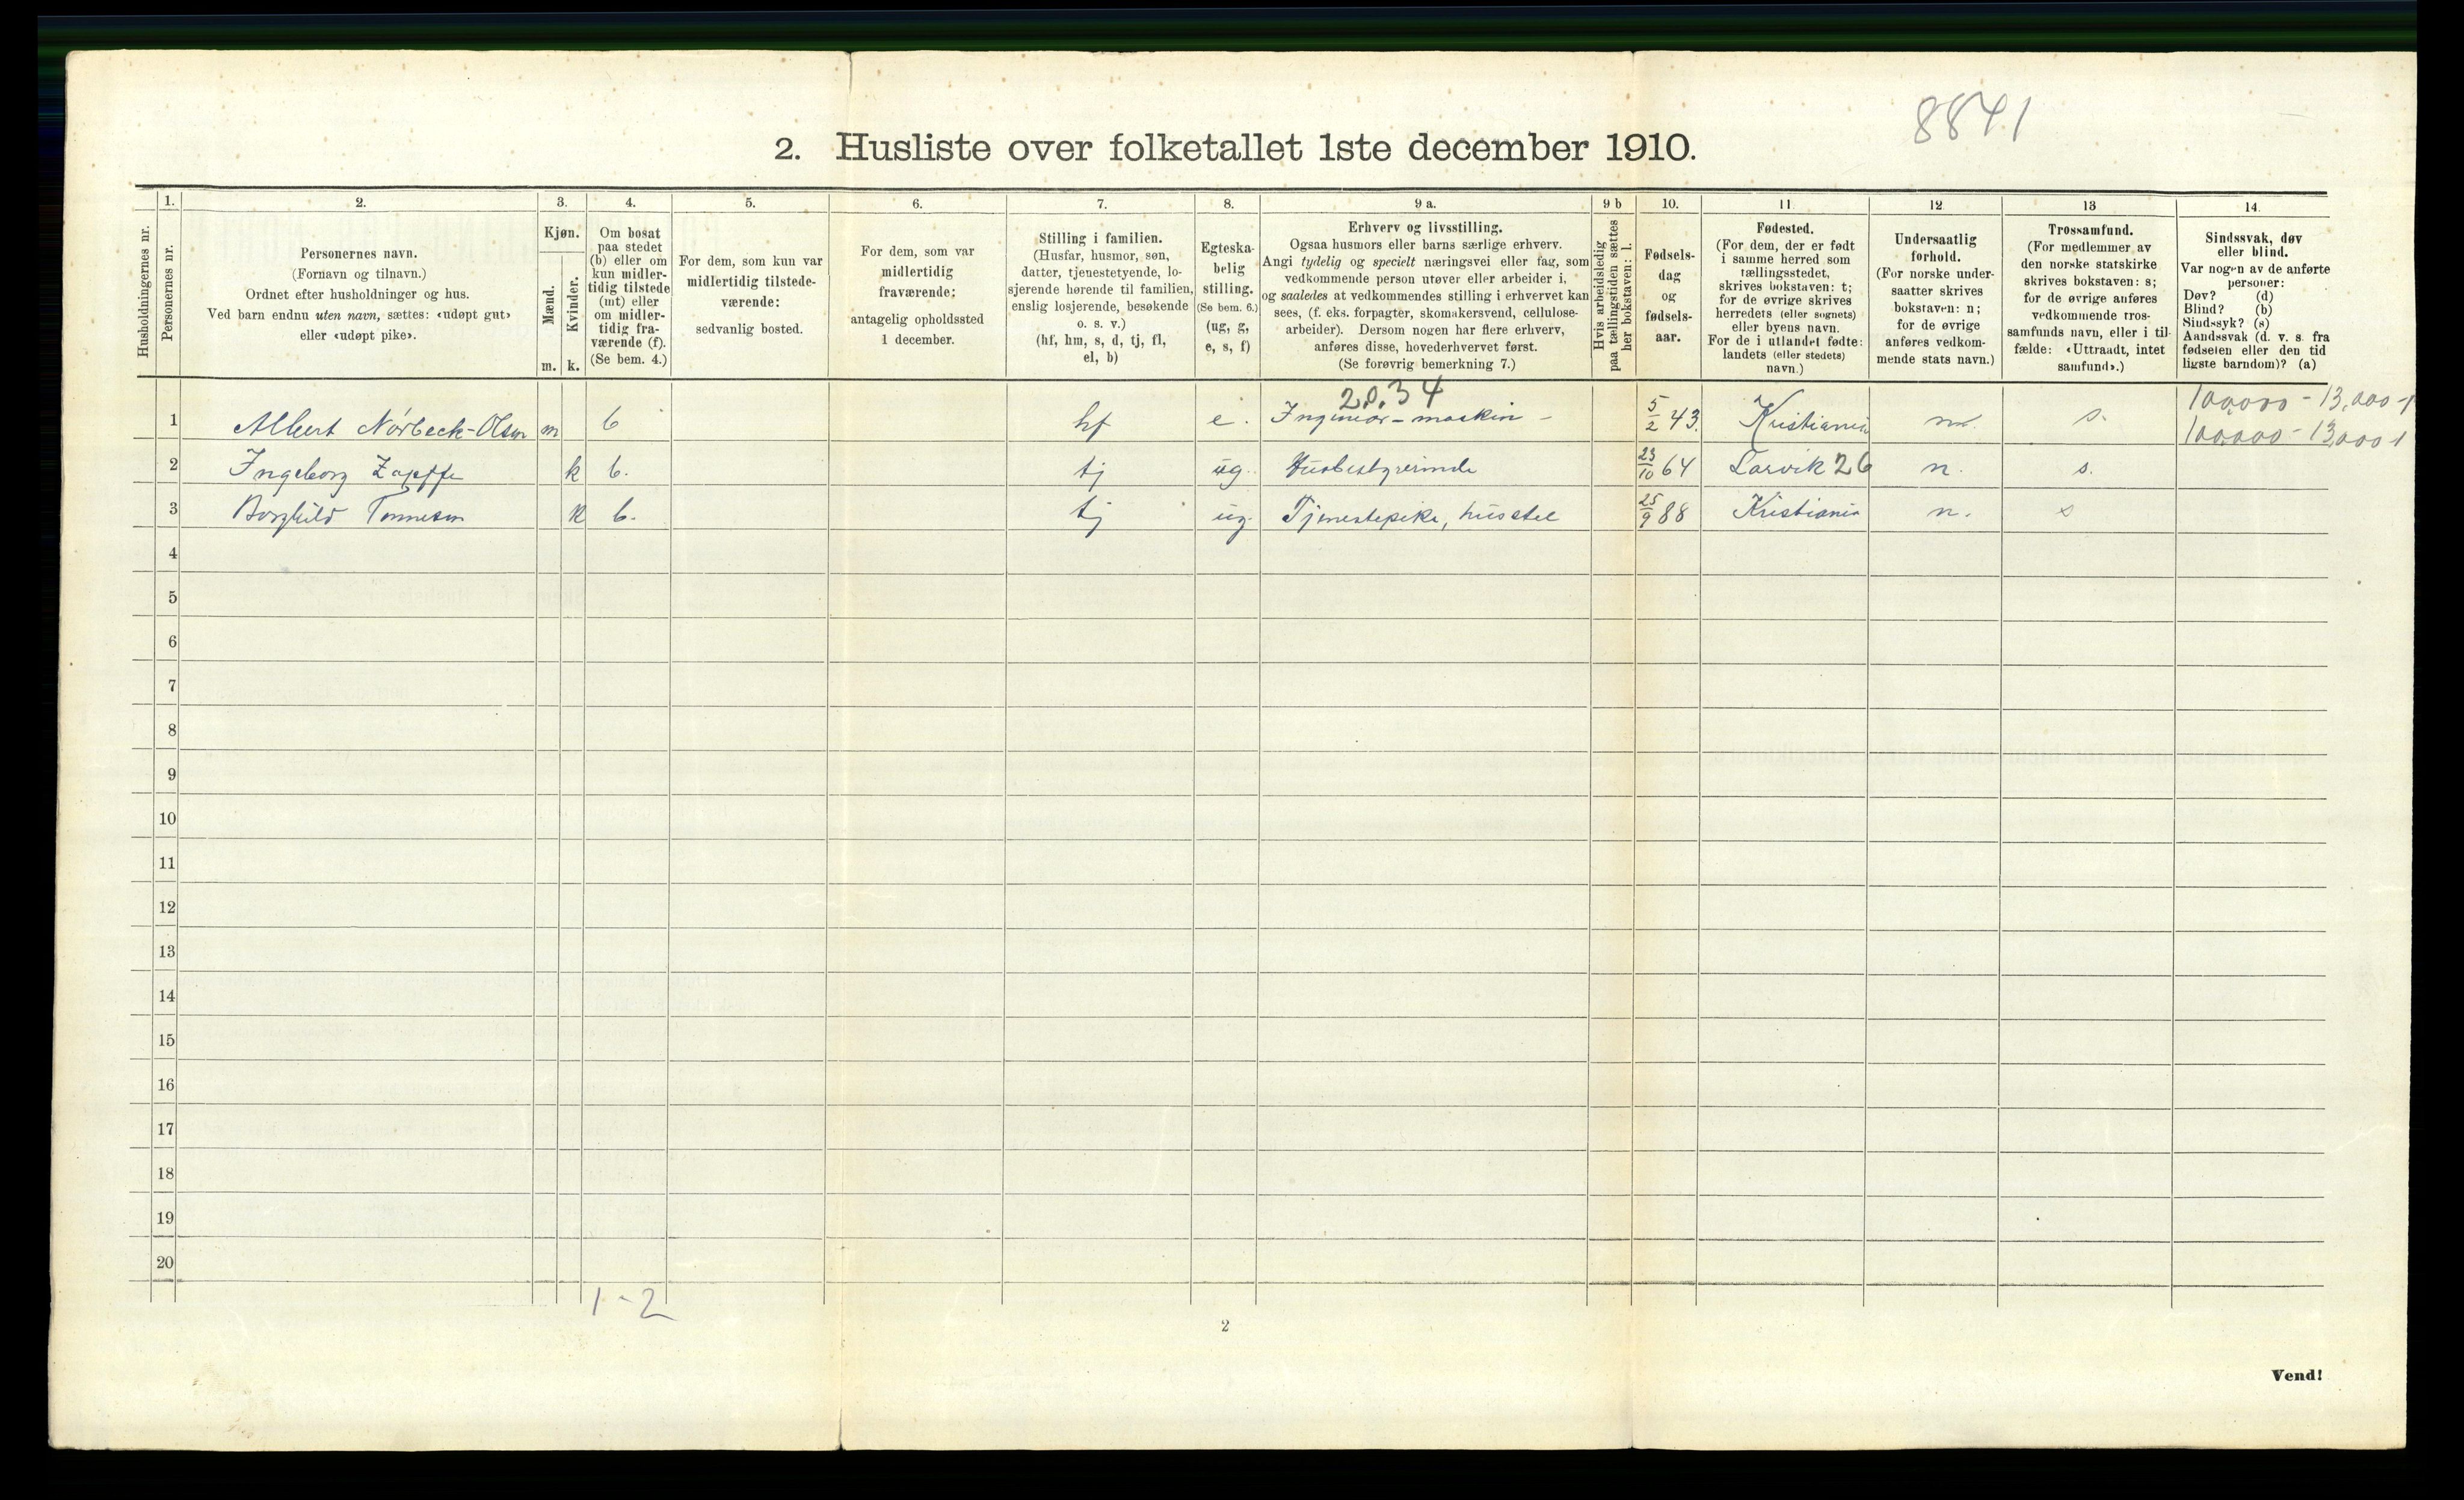 8841
2. Husliste over folketallet 1ste december 1910.
Husholdningernes nr.
1.
Personernes nr.
2.
Personernes navn.
(Fornavn og tilnavn.)
Ordnet efter husholdninger og hus.
Ved barn endnu uten navn, sættes: «udøpt gut»
eller «udøpt pike».
3.
Kjøn.
Mænd.
m.
Kvinder.
k.
4.
Om bosat
paa stedet
(b) eller om
kun midler-
tidig tilstede
(mt) eller
om midler-
tidig fra-
værende (f).
(Se bem. 4.)
5.
For dem, som kun var
midlertidig tilstede-
værende:
sedvanlig bosted.
6.
For dem, som var
midlertidig
fraværende:
antagelig opholdssted
1 december.
7.
Stilling i familien.
(Husfar, husmor, søn,
datter, tjenestetyende, lo-
sjerende hørende til familien,
enslig losjerende, besøkende
o. s. v.)
(hf, hm, s, d, tj, fl,
el, b)
8.
Egteska-
belig
stilling.
(Se bem. 6.)
(ug, g,
e, s, f)
9 a.
Erhverv og livsstilling.
Ogsaa husmors eller barns særlige erhverv.
Angi tydelig og specielt næringsvei eller fag, som
vedkommende person utøver eller arbeider i,
og saaledes at vedkommendes stilling i erhvervet kan
sees, (f. eks. forpagter, skomakersvend, cellulose-
arbeider). Dersom nogen har flere erhverv,
anføres disse, hovederhvervet først.
(Se forøvrig bemerkning 7.)
9 b
Hvis arbeidsledig
paa tællingstiden sættes
her bokstaven: l.
10.
Fødsels-
dag
og
fødsels-
aar.
11
Fødested.
(For dem, der er født
i samme herred som
tællingsstedet,
skrives bokstaven: t;
for de øvrige skrives
herredets (eller sognets)
eller byens navn.
For de i utlandet fødte:
landets (eller stedets)
navn.)
12
Undersaatlig
forhold.
(For norske under-
saatter skrives
bokstaven: n;
for de øvrige
anføres vedkom-
mende stats navn.)
13
Trossamfund.
(For medlemmer av
den norske statskirke
skrives bokstaven: s;
for de øvrige anføres
vedkommende tros-
samfunds navn, eller i til-
fælde: «Uttraadt, intet
samfund».)
14.
Sindssvak, døv
eller blind.
Var nogen av de anførte
personer:
Døv? (d)
Blind? (b)
Sindssyk? (s)
Aandssvak (d. v. s. fra
fødselen eller den tid
ligste barndom)? (a)
20.34
100,000 - 13,000 - 1
1 Albert Nørbeck-Olsen m b hf e. Ingeniør - maskin - 5/2 43. Kristiania n. s.
100,000 - 13,000 - 1
2 Ingeborg Zapffe k b. tj ug. Husbestyrerinde 23/10 64 Larvik 26 n. s.
3 Borghild Tønnesen k b. tj ug. Tjenestepike, husstel 25/9 88 Kristiania n. s
4
5
6
7
8
9
10
11
12
13
14
15
16
17
18
19
20
1 - 2
2
Vend!